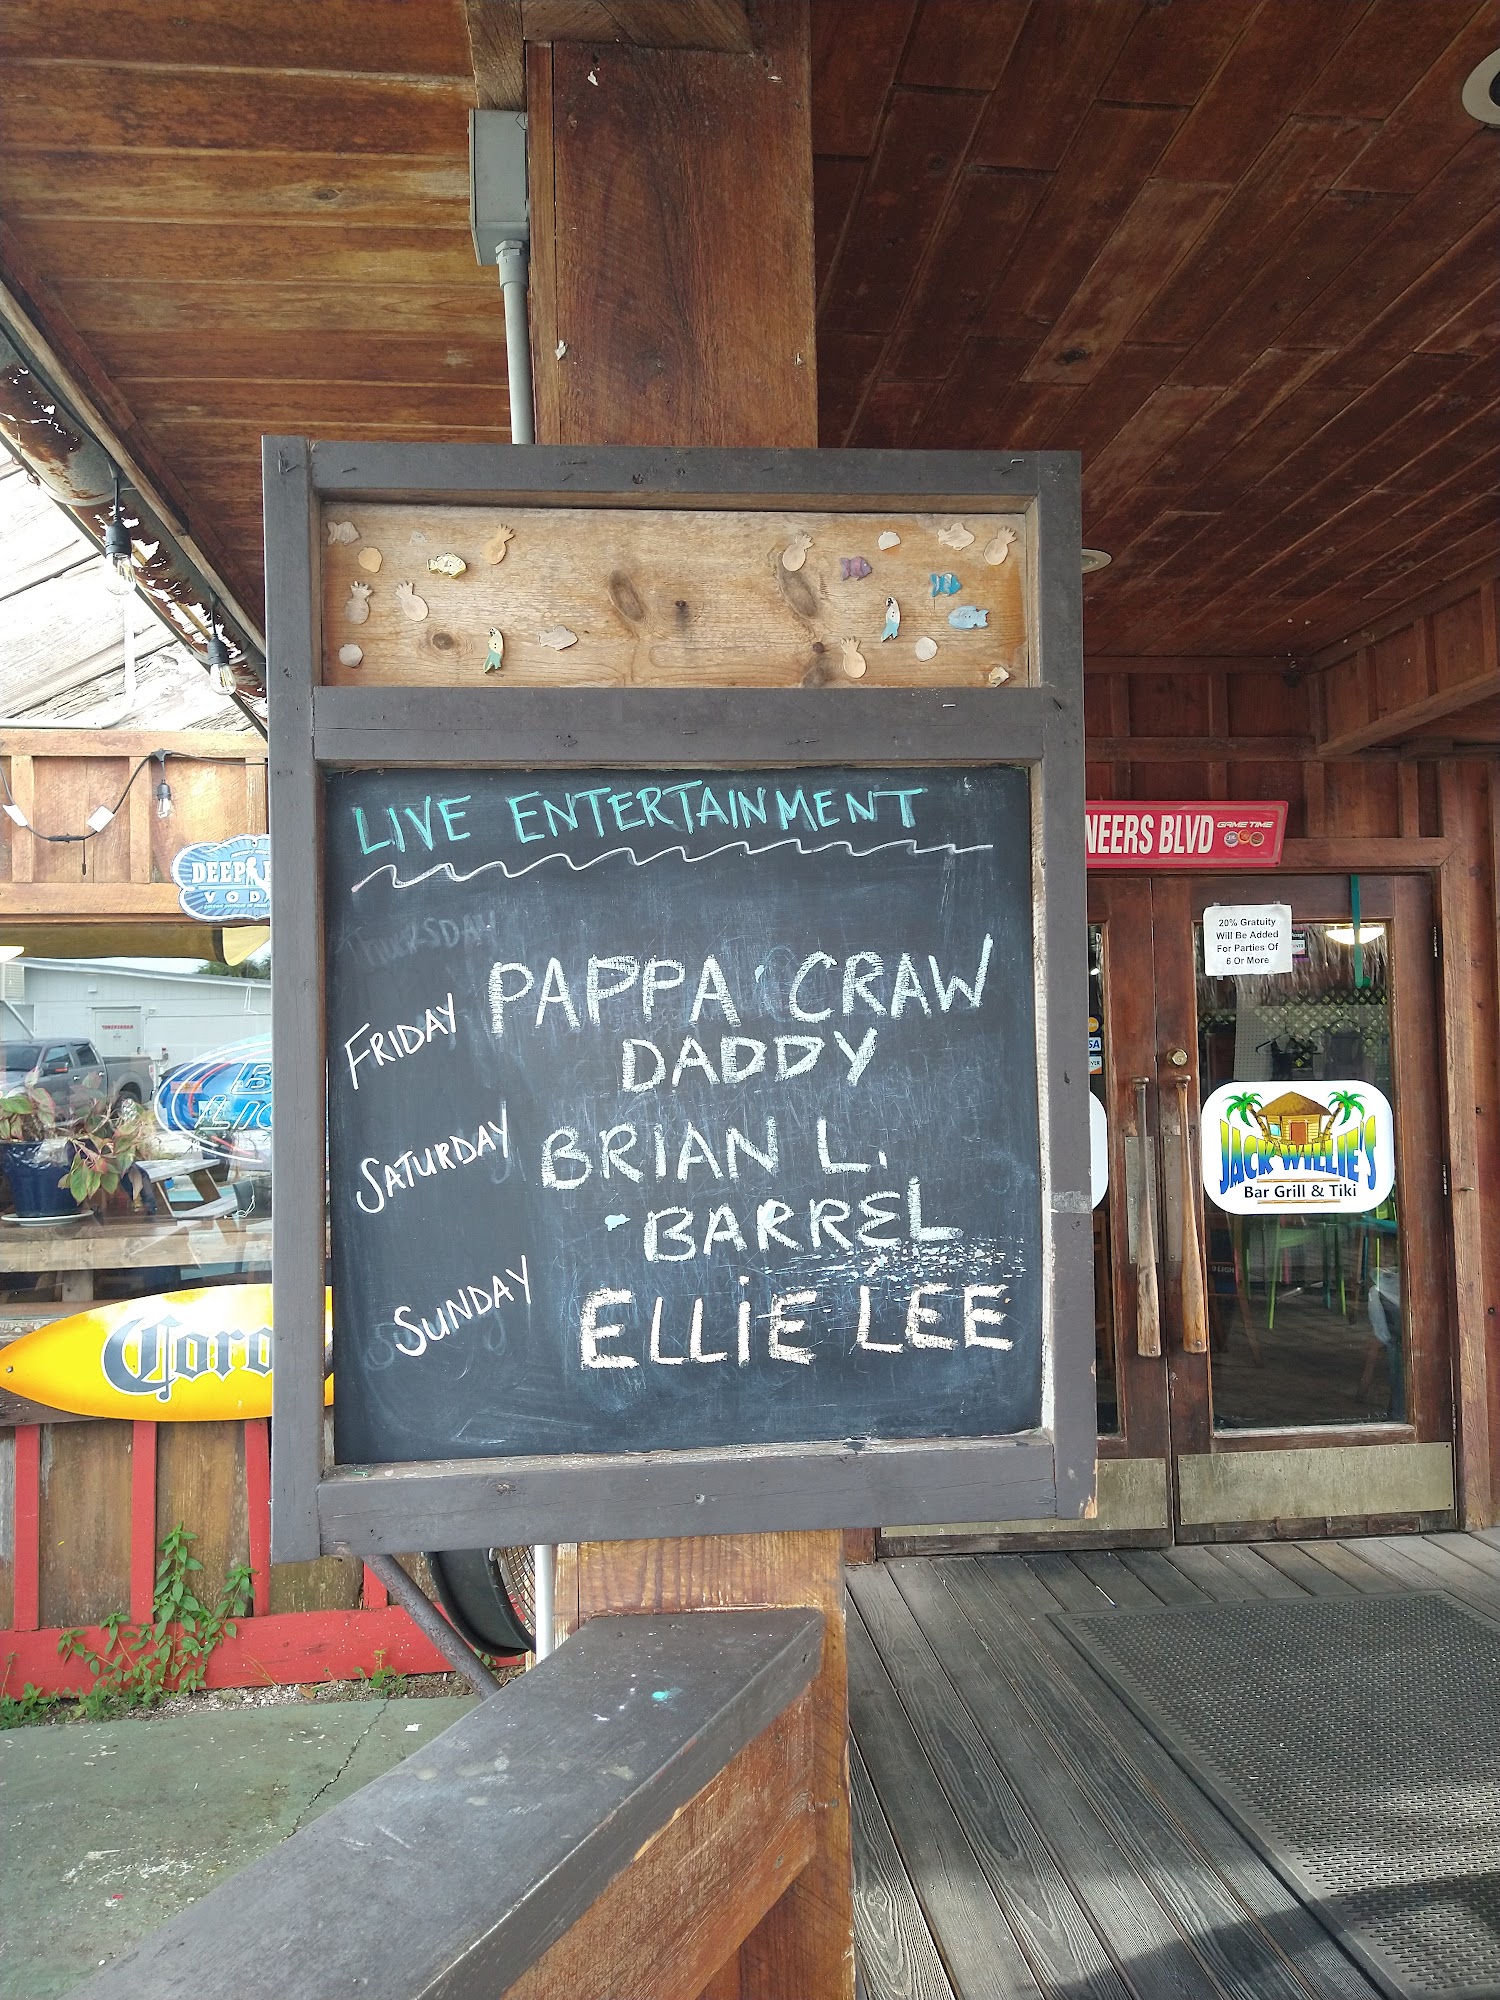 LIVE ENTERTAINMENT
THURSDAY
FRIDAY
PAPPA CRAW
DADDY
SATURDAY
BRIAN L.
BARREL
SUNDAY
ELLiE LEE
NEERS BLVD GAME TIME
20% Gratuity
Will Be Added
For Parties Of
6 Or More
JACK WILLIE'S
Bar Grill & Tiki
DEEP
VOD
B
LIG
Coro